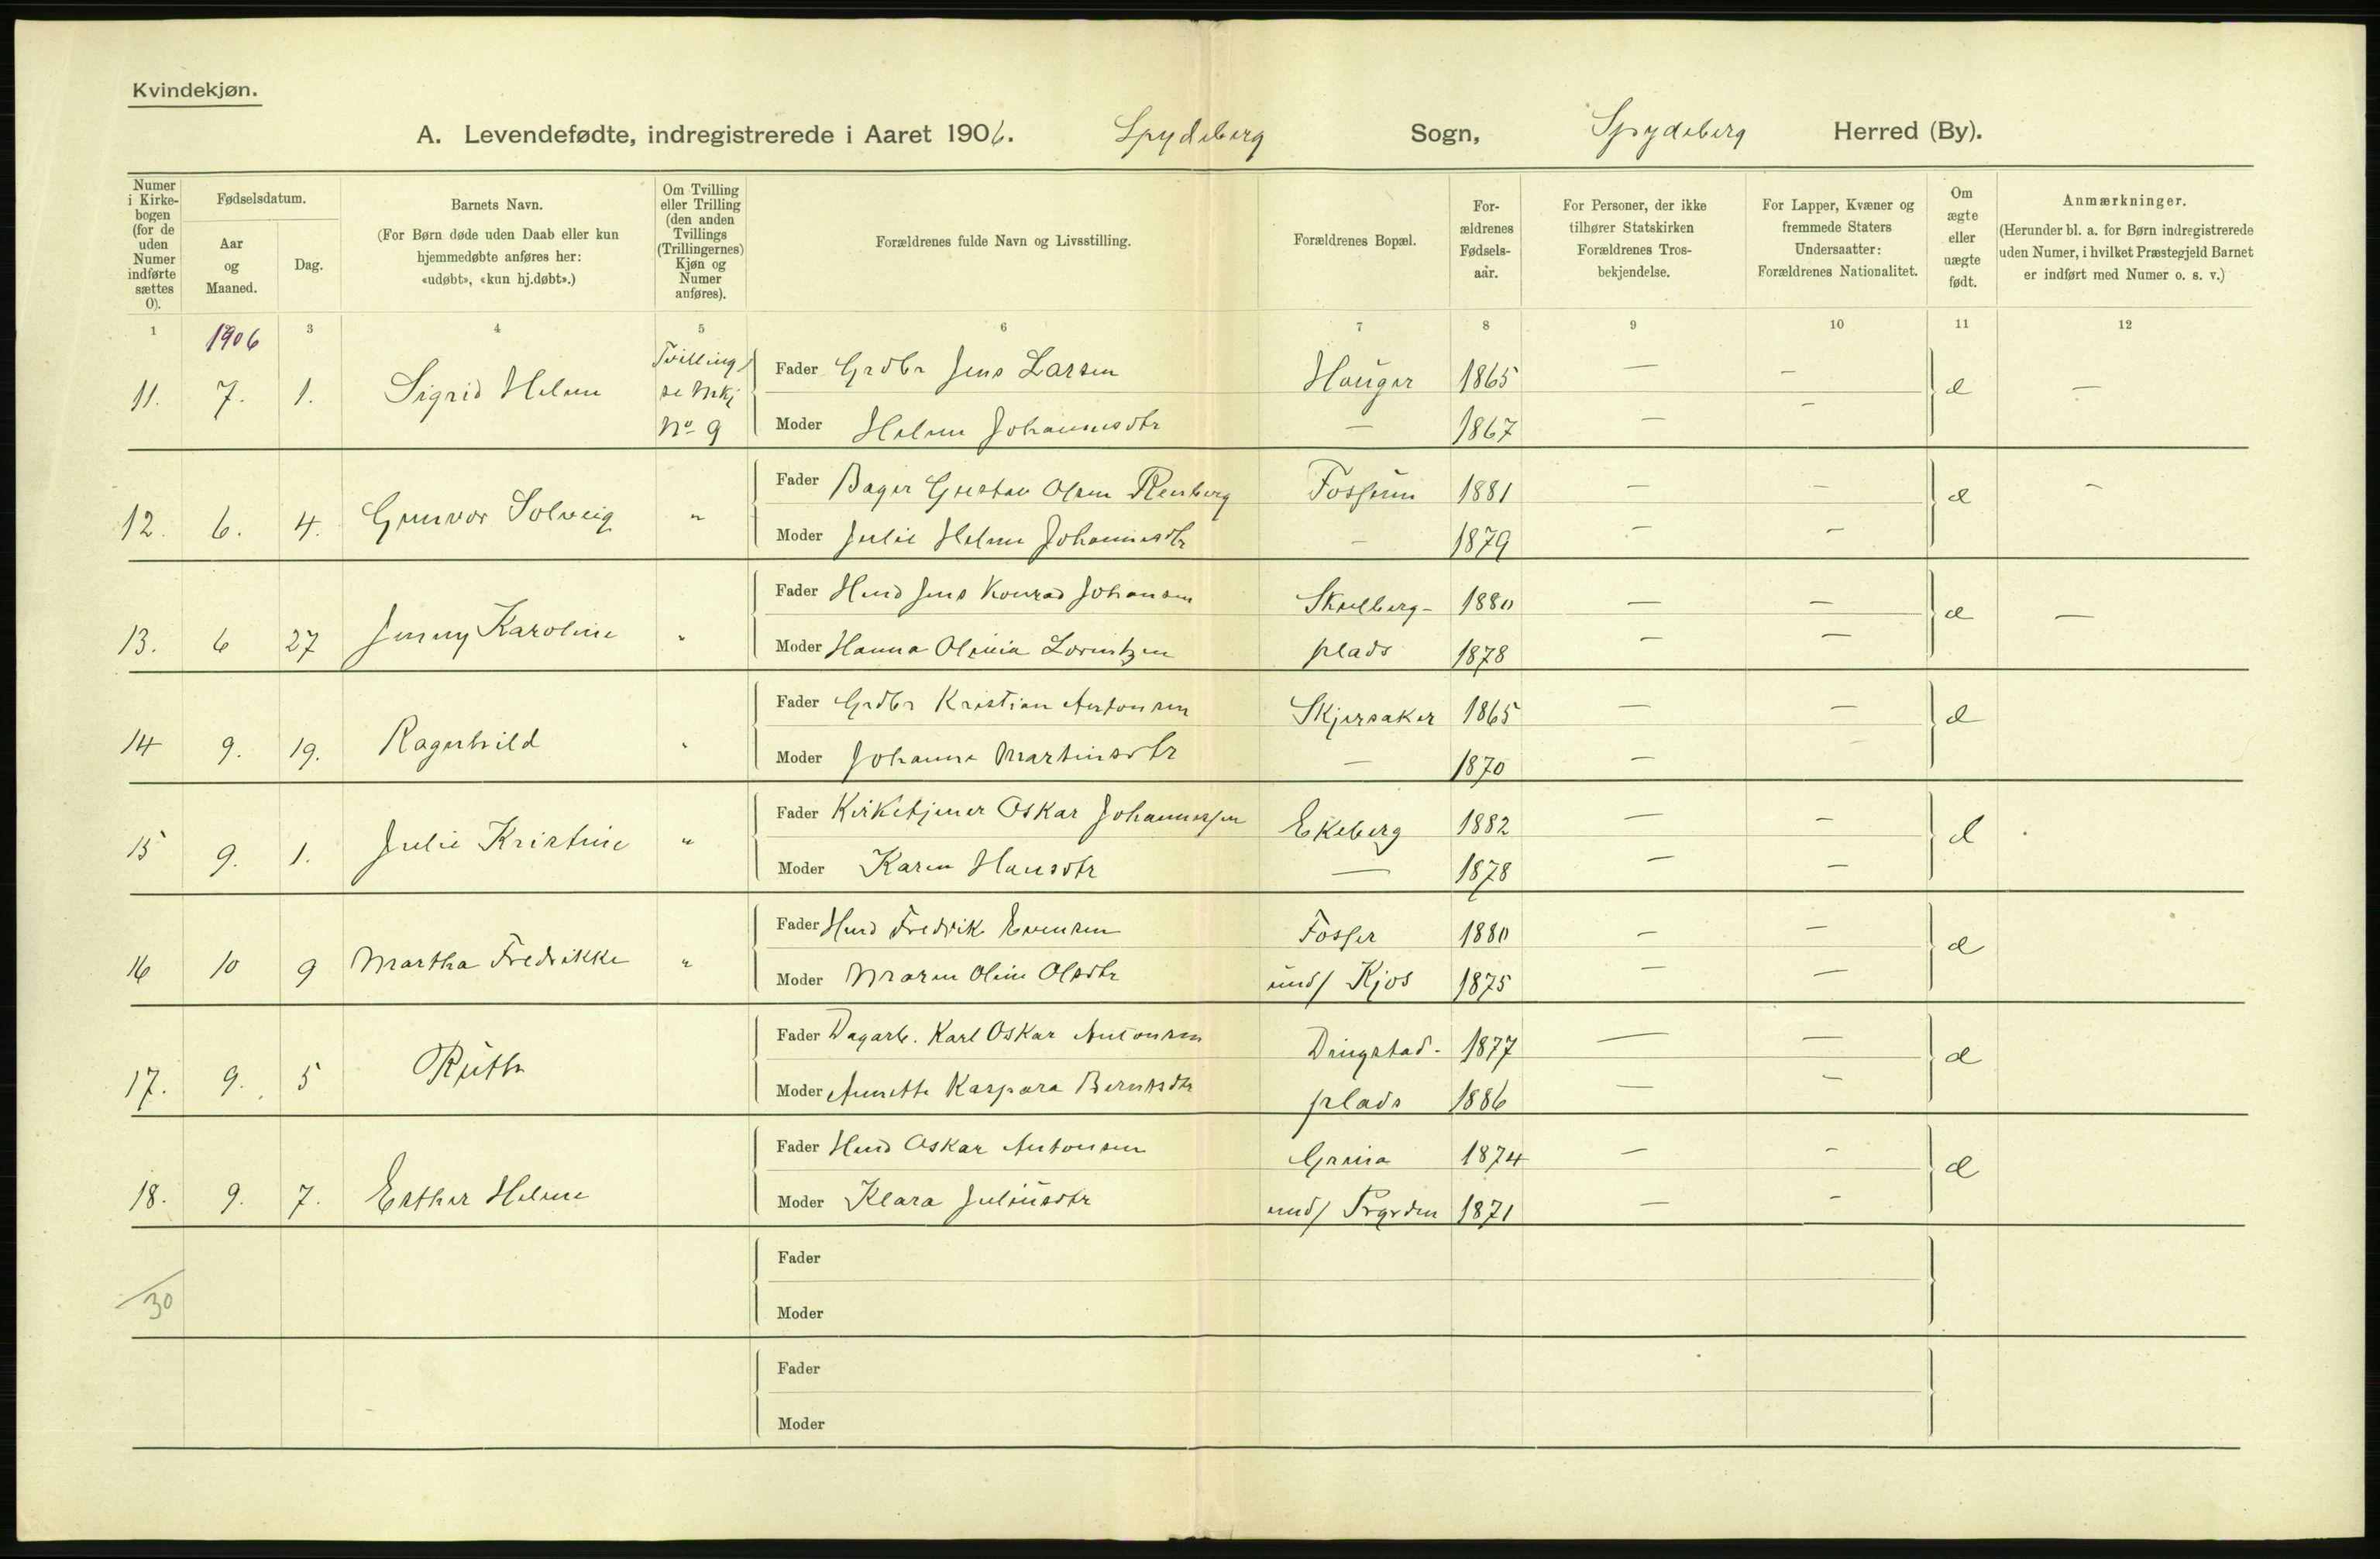 Kvindekjøn.
A. Levendefødte, indregistrerede i Aaret 1906. Spydeberg Sogn, Spydeberg Herred (By).
Numer i Kirkebogen (for de uden Numer indførte sættes 0).
Fødselsdatum.
Aar og Maaned.
Dag.
Barnets Navn.
(For Børn døde uden Daab eller kun hjemmedøbte anføres her: «udøbt», «kun hj.døbt».)
Om Tvilling eller Trilling (den anden Tvillings (Trillingernes) Kjøn og Numer anføres).
Forældrenes fulde Navn og Livsstilling.
Forældrenes Bopæl.
Forældrenes Fødselsaar.
For Personer, der ikke tilhører Statskirken Forældrenes Trosbekjendelse.
For Lapper, Kvæner og fremmede Staters Undersaatter: Forældrenes Nationalitet.
Om ægte eller uægte født.
Anmærkninger.
(Herunder bl. a. for Børn indregistrerede uden Numer, i hvilket Præstegjeld Barnet er indført med Numer o. s. v.)
1 2 3 4 5 6 7 8 9 10 11 12
1906
11. 7. 1. Sigrid Helene Tvilling se Mkj No 9
Fader Grdbr Jens Larsen Hauger 1865 — — æ —
Moder Helene Johannesdtr — 1867 — —
12. 6. 4. Gunvor Solveig "
Fader Bager Gustav Olsen Renberg Fossum 1881 — — æ —
Moder Julie Helene Johannesdtr — 1879 — —
13. 6 27 Jenny Karoline "
Fader Husd Jens Konrad Johansen Skulberg- 1880 — — æ —
Moder Hanna Olivia Lorentzen plads 1878 — —
14 9. 19. Ragnhild "
Fader Grdbr Kristian Antonsen Skjersaker 1865 — — æ
Moder Johanne Martinsdtr — 1870 — —
15 9. 1. Julie Kristine "
Fader Kirketjener Oskar Johannessen Ekeberg 1882 — — æ
Moder Karen Hansdtr — 1878 — —
16 10 9 Martha Fredrikke "
Fader Husd Fredrik Evensen Fosser 1880 — — æ
Moder Maren Oline Olsdtr und/ Kjos 1875 — —
17. 9. 5 Ruth
Fader Dagarb. Karl Oskar Antonsen Dingstad- 1877 — — æ
Moder Annette Kaspara Berntsdtr plads 1886 — —
18. 9. 7. Esther Helene
Fader Husd Oskar Antonsen 1874 — — æ
Moder Klara Juliusdtr und/ Prgrden 1871 — —
30
Fader
Moder
Fader
Moder